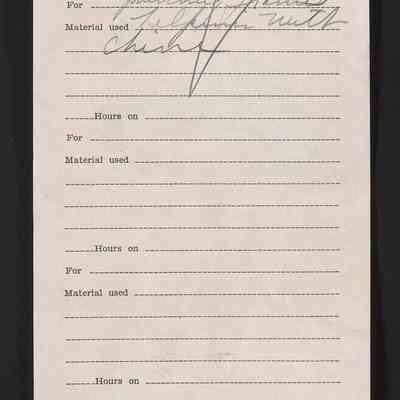 For
Material used helping with
china
Hours on
For
Material used
Hours on
For
Material used
Hours on